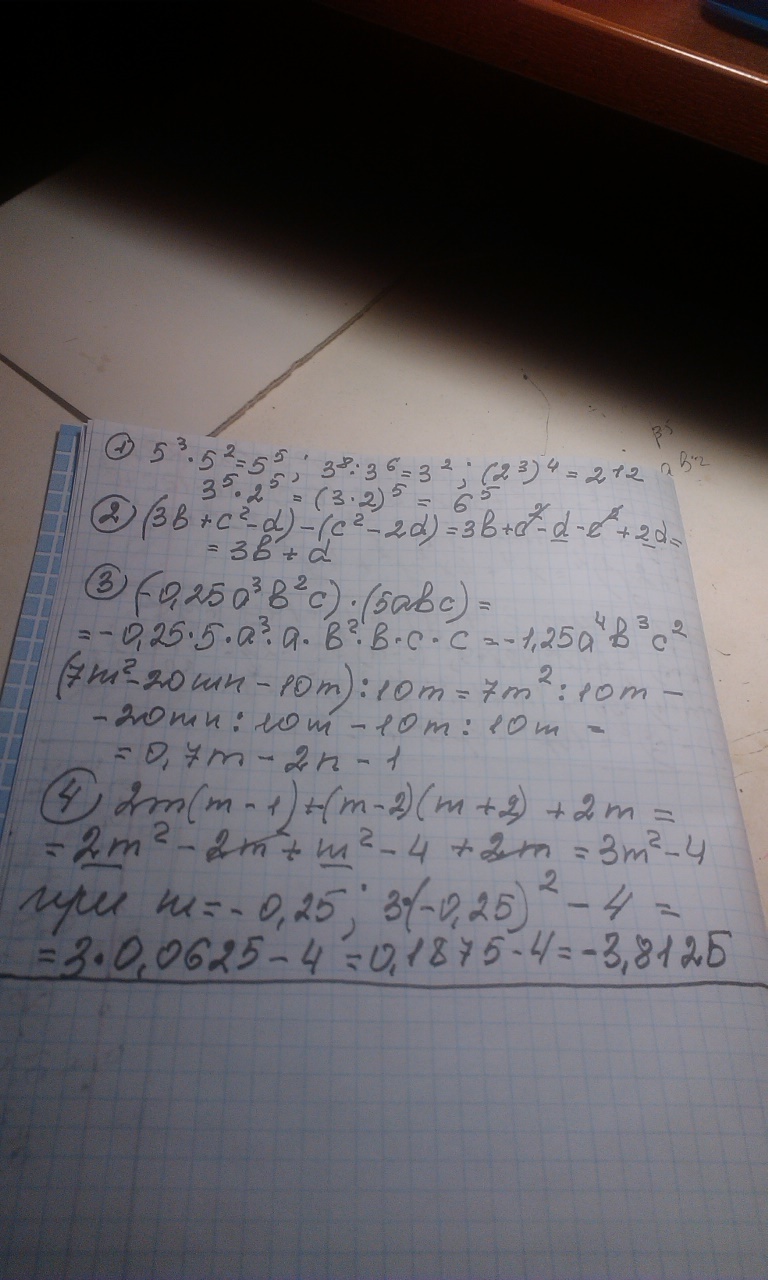 ① 5³·5²=5⁵; 3⁸:3⁶=3²; (2³)⁴=2¹²
3⁵·2⁵=(3·2)⁵=6⁵
② (3b+c²-d)-(c²-2d)=3b+c²-d-c²+2d=
=3b+d
③ (-0,25a³b²c)·(5abc)=
=-0,25·5·a³·a·b²·b·c·c=-1,25a⁴b³c²
(7m²-20mn-10m):10m=7m²:10m-
-20mn:10m-10m:10m=
=0,7m-2n-1
④ 2m(m-1)+(m-2)(m+2)+2m=
=2m²-2m+m²-4+2m=3m²-4
при m=-0,25; 3·(-0,25)²-4=
=3·0,0625-4=0,1875-4=-3,8125